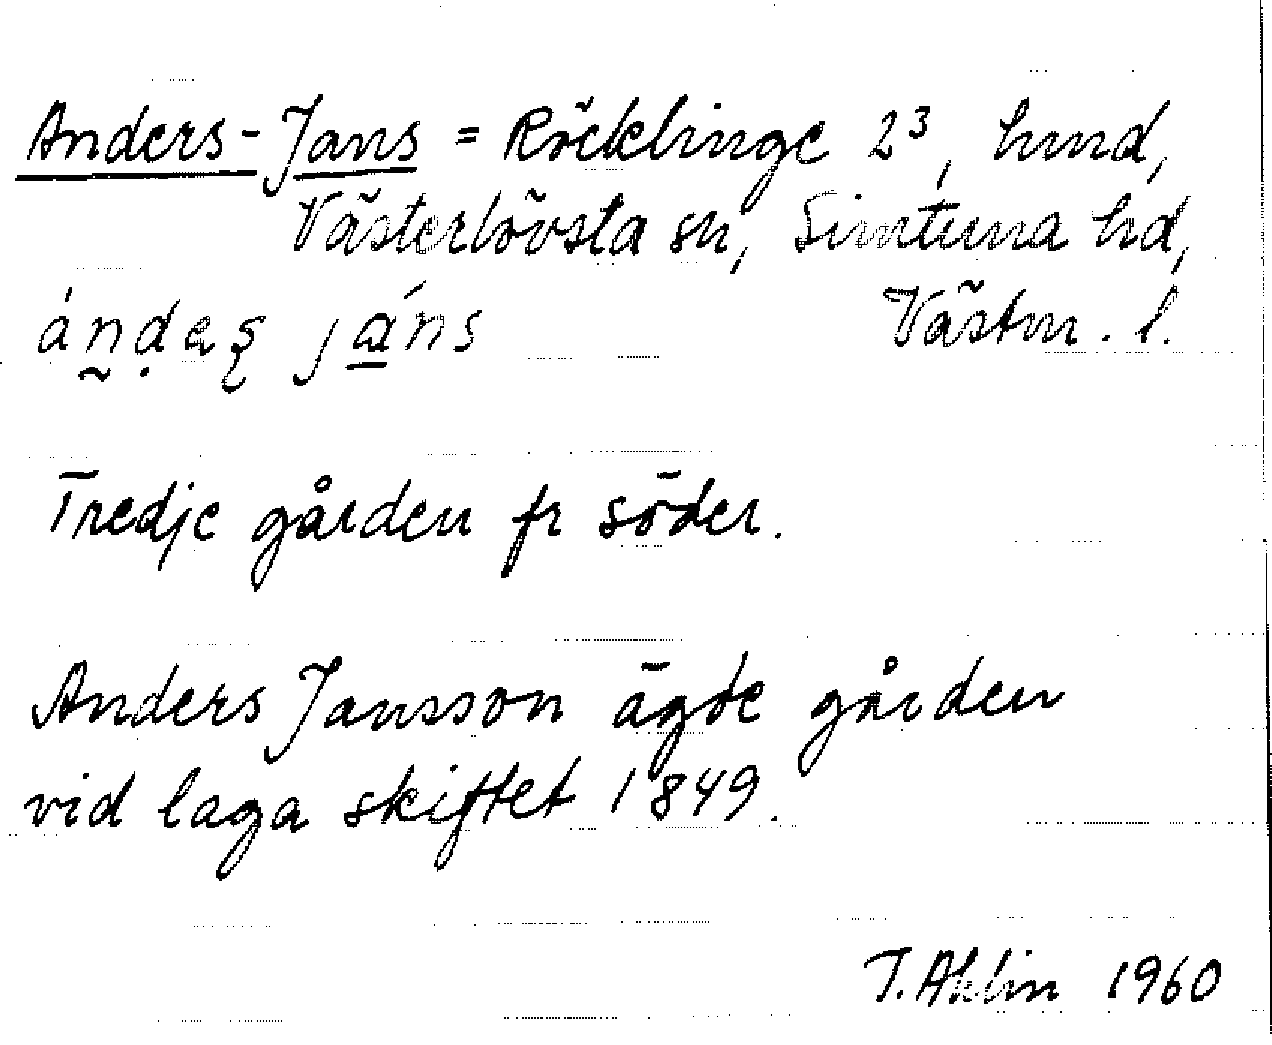 Anders-Jans = Röcklinge 2³, hmd,
Västerlövsta sn, Simtuna hd,
Västm. l.
Tredje gården fr söder.
Anders Jansson ägde gården
vid laga skiftet 1849.
T. Ahlin 1960